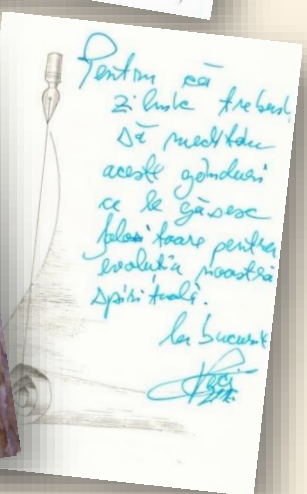 Pentru că
zilnic trebuie
să medităm
aceste gânduri
ce le găsesc
folositoare pentru
evoluția noastră
spirituală.
Cu bucurie